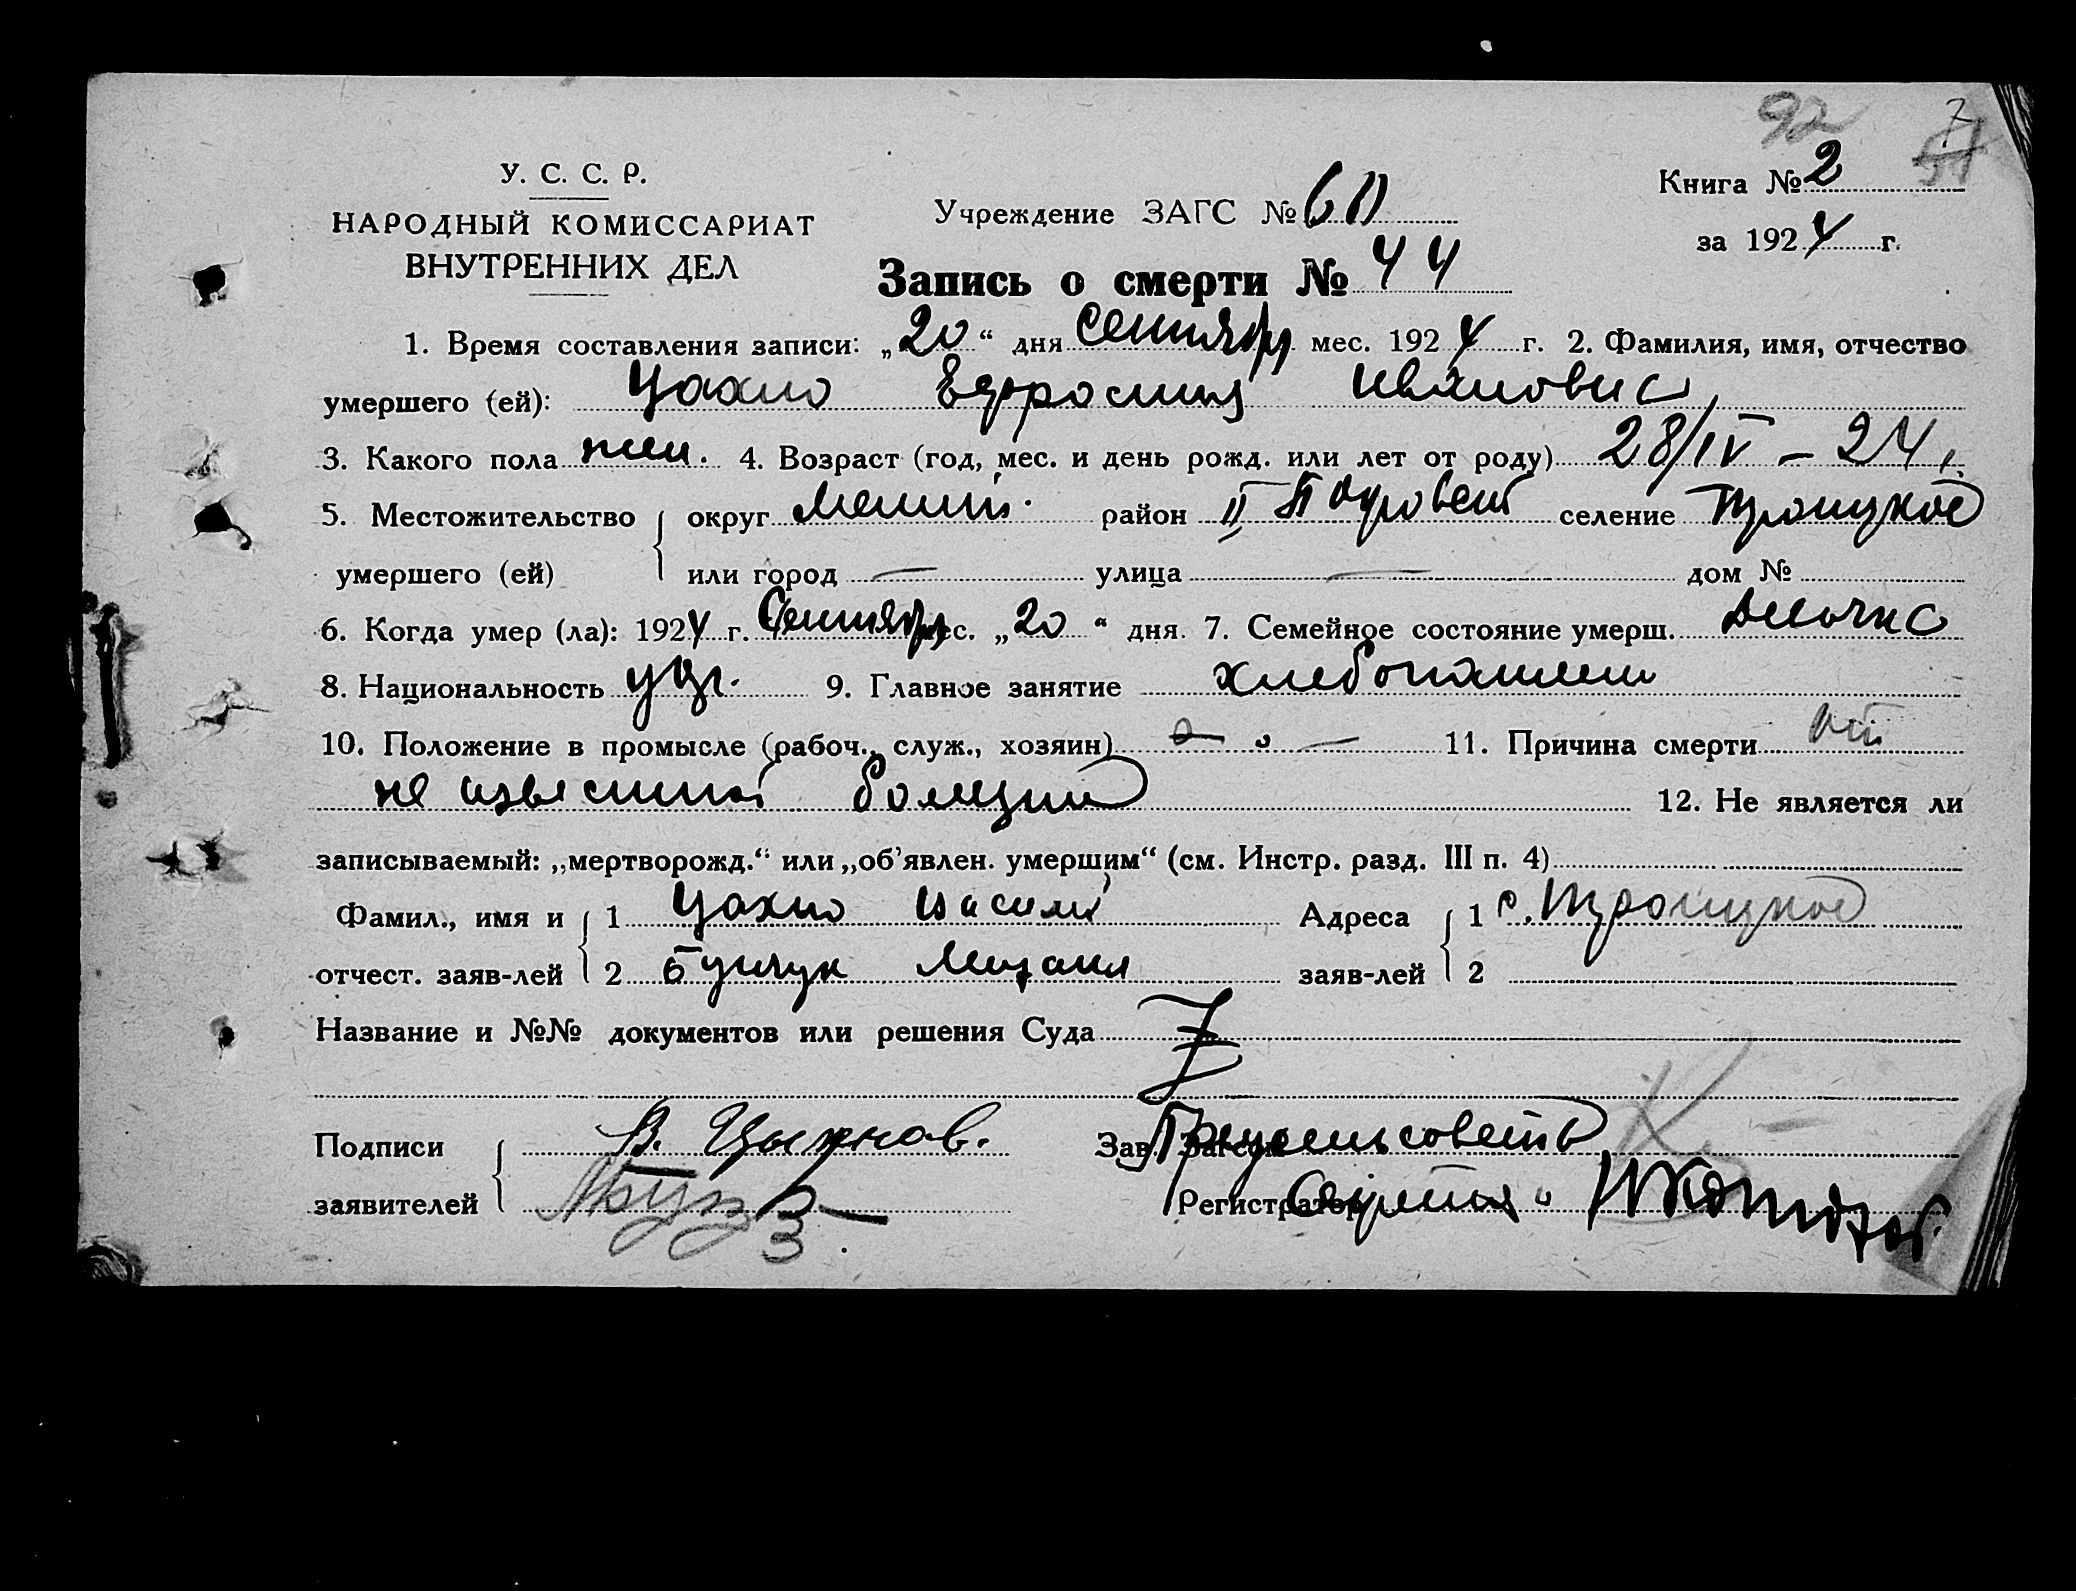 92 7
У. С. С. Р.
НАРОДНЫЙ КОМИССАРИАТ
ВНУТРЕННИХ ДЕЛ
Учреждение ЗАГС №
Книга № 2
за 1924 г.
Запись о смерти № 44
1. Время составления записи: „20“ дня Сентября мес. 1924 г. 2. Фамилия, имя, отчество
умершего (ей): Цахно Ефросиния Ивановна
3. Какого пола жен. 4. Возраст (год, мес. и день рожд. или лет от роду) 28/IV – 24 г.
5. Местожительство округ район II Покровск селение Троицкое
умершего (ей) или город — улица — дом №
6. Когда умер (ла): 1924 г. Сентября мес. „20“ дня. 7. Семейное состояние умерш.
8. Национальность укр. 9. Главное занятие хлебопашец
10. Положение в промысле (рабоч., служ., хозяин) 11. Причина смерти от
не известной болезни 12. Не является ли
записываемый: „мертворожд.“ или „об'явлен. умершим“ (см. Инстр. разд. III п. 4)
Фамил., имя и 1 Цахно Василий Адреса 1 с. Троицкое
отчест. заяв-лей 2 заяв-лей 2
Название и №№ документов или решения Суда
Подписи Зав. Загсом Предсельсовета
заявителей Регистратор